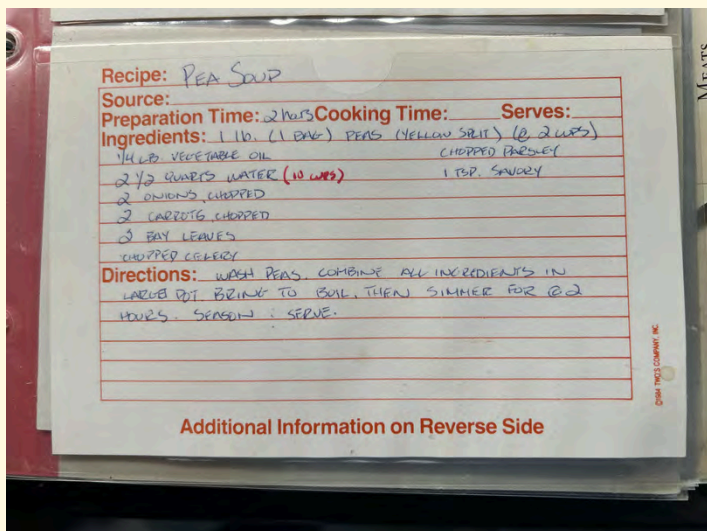 Recipe: PEA SOUP
Source:
Preparation Time: 2 hours Cooking Time: Serves:
Ingredients: 1 lb. (1 BAG) PEAS (YELLOW SPLIT) (@ 2 CUPS)
1/4 LB VEGETABLE OIL CHOPPED PARSLEY
2 1/2 QUARTS WATER (10 CUPS) 1 TSP. SAVORY
2 ONIONS, CHOPPED
2 CARROTS, CHOPPED
2 BAY LEAVES
CHOPPED CELERY
Directions: WASH PEAS. COMBINE ALL INGREDIENTS IN
LARGE POT. BRING TO BOIL, THEN SIMMER FOR @ 2
HOURS. SEASON : SERVE.
©1984 TWO'S COMPANY, INC.
Additional Information on Reverse Side
MEATS